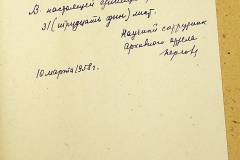 В настоящей
31 (тридцать один) лист.
Научный сотрудник
Архивного отдела
10 марта 1958 г.